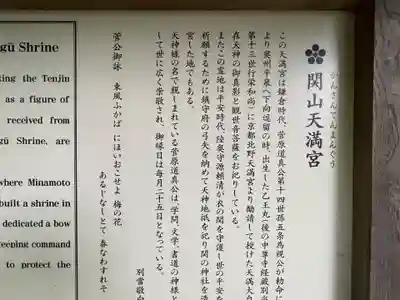 関山天満宮
かんざんてんまんぐう
この天満宮は鎌倉時代、菅原道真公第十四世孫五条為視公が勅命に
より奥州平泉へ下向逗留の時、出生した乙王丸(後の中尊寺経蔵別当
第十三世行栄和尚)に京都北野天満宮より勧請して授けた天満大自
在天神の御真影と観世音菩薩をお祀りしている。
またこの霊地は平安時代、陸奥守源頼清が衣の関を守護し世の平安を
祈願するために鎮守府の弓矢を納めて天神地祇を祀り関の神社を造
営した地でもある。
天神様の名で親しまれている菅原道真公は、学問、文学、書道の神様と
して世に広く崇敬され、御縁日は毎月二十五日となっている。
菅公御詠 東風ふかば にほいおこせよ 梅の花
あるじなしとて 春なわすれそ
別當敬白
gū Shrine
ting the Tenjin
as a figure of
received from
gū Shrine, are
where Minamoto
built a shrine in
dedicated a bow
keeping command
to protect the